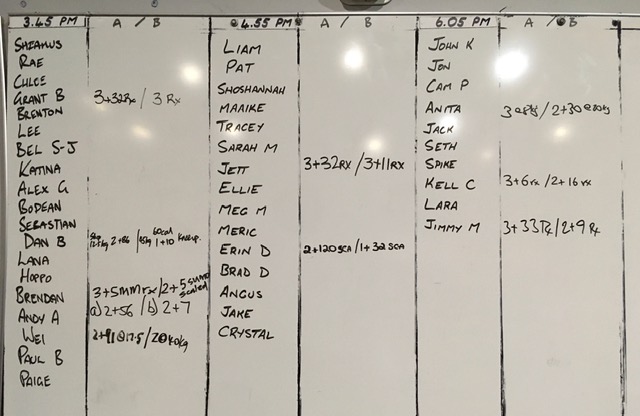 3.45 PM A / B
SHEAMUS
RAE
CHLOE
GRANT B 3+32Rx / 3 Rx
BRENTON
LEE
BEL S-J
KATINA
ALEX G
BODEAN
SEBASTIAN
DAN B 12.5kg 2+86 / 45kg 60cal 1+10
LANA
HOPPO
BRENDAN 3+5 / 2+5 scaled
ANDY A a) 2+56 / b) 2+7
WEI 2+91@17.5 /
PAUL B
PAIGE
4.55 PM A / B
LIAM
PAT
SHOSHANNAH
MAAIKE
TRACEY
SARAH M
JETT 3+32RX / 3+11RX
ELLIE
MEG M
MERIC
ERIN D 2+120 SCA / 1+32 SCA
BRAD D
ANGUS
JAKE
CRYSTAL
6.05 PM A / B
JOHN K
JON
CAM P
ANITA 3 / 2+30
JACK
SETH
SPIKE
KELL C 3+6rx / 2+16rx
LARA
JIMMY M 3+33 Rx / 2+9 Rx